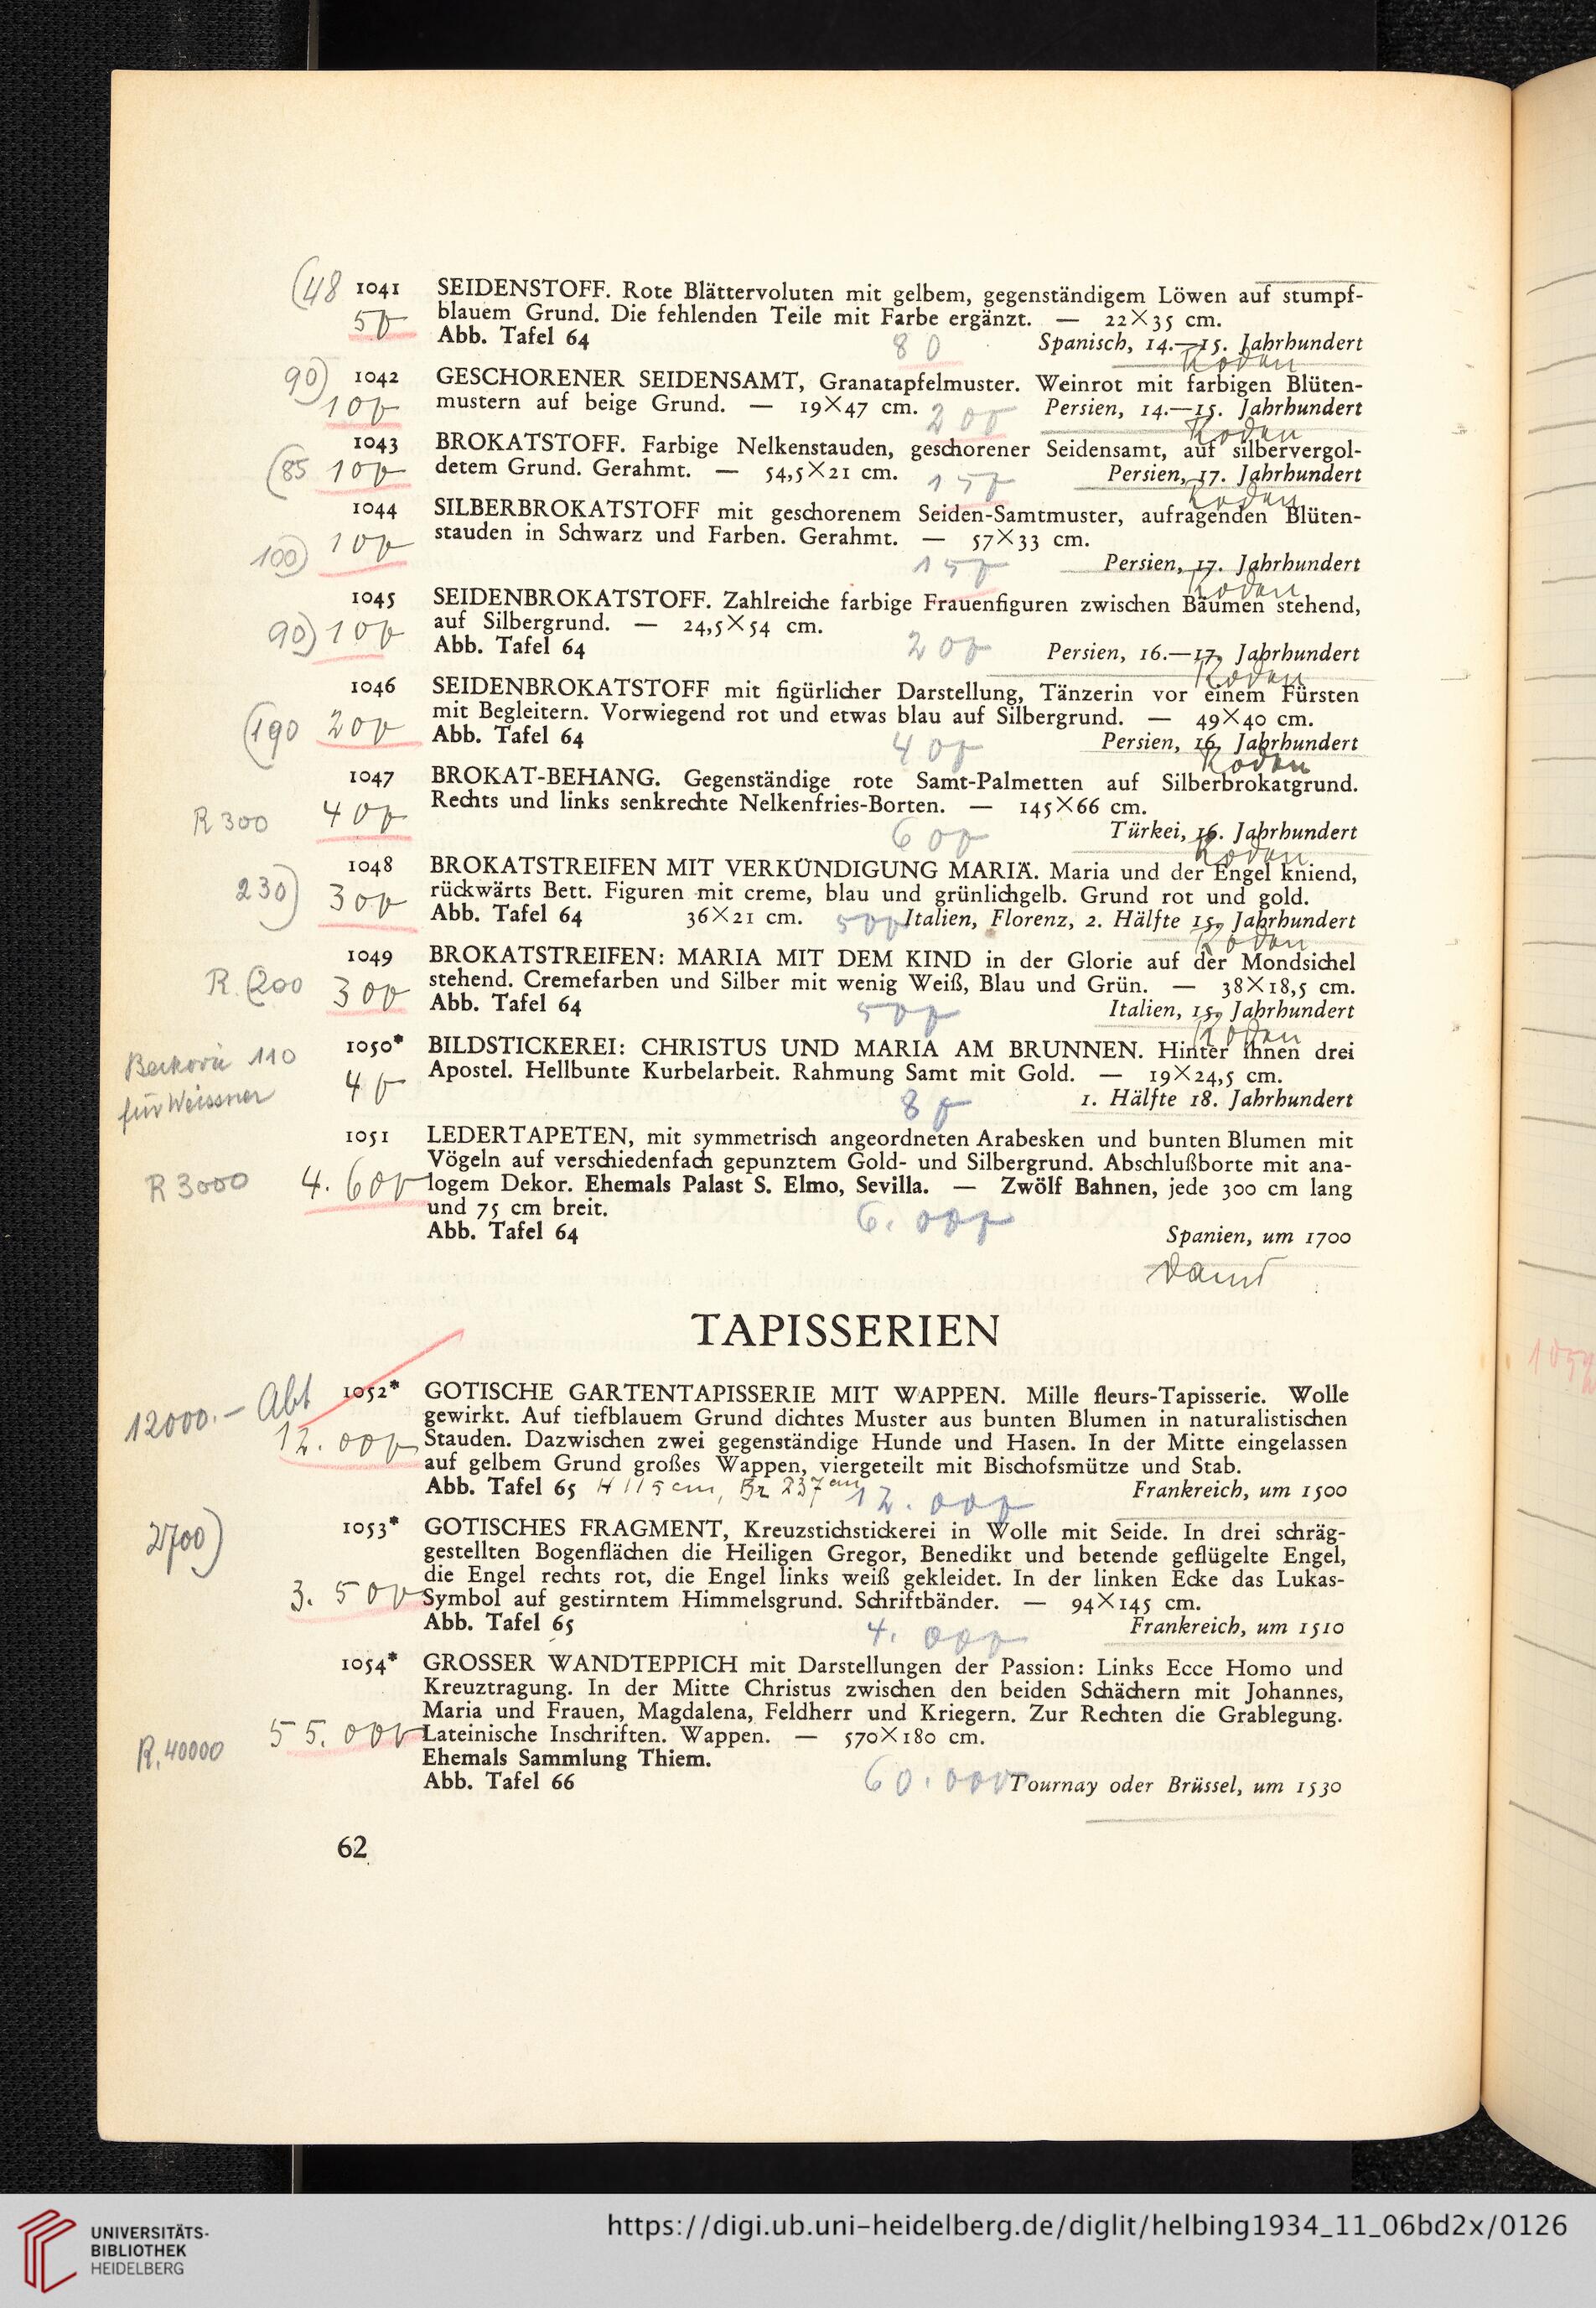 (48 1041 SEIDENSTOFF. Rote Blättervoluten mit gelbem, gegenständigem Löwen auf stumpf-
50 blauem Grund. Die fehlenden Teile mit Farbe ergänzt. — 22×35 cm.
Abb. Tafel 64 80 Spanisch, 14.—15. Jahrhundert
90) 1042 GESCHORENER SEIDENSAMT, Granatapfelmuster. Weinrot mit farbigen Blüten-
100 mustern auf beige Grund. — 19×47 cm. 200 Persien, 14.—15. Jahrhundert
1043 BROKATSTOFF. Farbige Nelkenstauden, geschorener Seidensamt, auf silbervergol-
(85 100 detem Grund. Gerahmt. — 54,5×21 cm. 150 Persien, 17. Jahrhundert
1044 SILBERBROKATSTOFF mit geschorenem Seiden-Samtmuster, aufragenden Blüten-
100) 100 stauden in Schwarz und Farben. Gerahmt. — 57×33 cm.
150 Persien, 17. Jahrhundert
1045 SEIDENBROKATSTOFF. Zahlreiche farbige Frauenfiguren zwischen Bäumen stehend,
90) 100 auf Silbergrund. — 24,5×54 cm.
Abb. Tafel 64 200 Persien, 16.—17. Jahrhundert
1046 SEIDENBROKATSTOFF mit figürlicher Darstellung, Tänzerin vor einem Fürsten
(190 200 mit Begleitern. Vorwiegend rot und etwas blau auf Silbergrund. — 49×40 cm.
Abb. Tafel 64 400 Persien, 16. Jahrhundert
1047 BROKAT-BEHANG. Gegenständige rote Samt-Palmetten auf Silberbrokatgrund.
R 300 400 Rechts und links senkrechte Nelkenfries-Borten. — 145×66 cm.
600 Türkei, 16. Jahrhundert
1048 BROKATSTREIFEN MIT VERKÜNDIGUNG MARIÄ. Maria und der Engel kniend,
230) 300 rückwärts Bett. Figuren mit creme, blau und grünlichgelb. Grund rot und gold.
Abb. Tafel 64 36×21 cm. 500 Italien, Florenz, 2. Hälfte 15. Jahrhundert
1049 BROKATSTREIFEN: MARIA MIT DEM KIND in der Glorie auf der Mondsichel
R. (200 300 stehend. Cremefarben und Silber mit wenig Weiß, Blau und Grün. — 38×18,5 cm.
Abb. Tafel 64 500 Italien, 15. Jahrhundert
110 1050* BILDSTICKEREI: CHRISTUS UND MARIA AM BRUNNEN. Hinter ihnen drei
für Weissner 40 Apostel. Hellbunte Kurbelarbeit. Rahmung Samt mit Gold. — 19×24,5 cm.
80 1. Hälfte 18. Jahrhundert
1051 LEDERTAPETEN, mit symmetrisch angeordneten Arabesken und bunten Blumen mit
Vögeln auf verschiedenfach gepunztem Gold- und Silbergrund. Abschlußborte mit ana-
R 3000 4.600 logem Dekor. Ehemals Palast S. Elmo, Sevilla. — Zwölf Bahnen, jede 300 cm lang
und 75 cm breit. 6.000
Abb. Tafel 64 Spanien, um 1700
TAPISSERIEN
12000.- Abt 1052* GOTISCHE GARTENTAPISSERIE MIT WAPPEN. Mille fleurs-Tapisserie. Wolle
gewirkt. Auf tiefblauem Grund dichtes Muster aus bunten Blumen in naturalistischen
12.000 Stauden. Dazwischen zwei gegenständige Hunde und Hasen. In der Mitte eingelassen
auf gelbem Grund großes Wappen, viergeteilt mit Bischofsmütze und Stab.
Abb. Tafel 65 H 115 cm, Br 237 cm 12.000 Frankreich, um 1500
2700) 1053* GOTISCHES FRAGMENT, Kreuzstichstickerei in Wolle mit Seide. In drei schräg-
gestellten Bogenflächen die Heiligen Gregor, Benedikt und betende geflügelte Engel,
die Engel rechts rot, die Engel links weiß gekleidet. In der linken Ecke das Lukas-
3.500 Symbol auf gestirntem Himmelsgrund. Schriftbänder. — 94×145 cm.
Abb. Tafel 65 4.000 Frankreich, um 1510
1054* GROSSER WANDTEPPICH mit Darstellungen der Passion: Links Ecce Homo und
Kreuztragung. In der Mitte Christus zwischen den beiden Schächern mit Johannes,
Maria und Frauen, Magdalena, Feldherr und Kriegern. Zur Rechten die Grablegung.
R. 40000 55.000 Lateinische Inschriften. Wappen. — 570×180 cm.
Ehemals Sammlung Thiem.
Abb. Tafel 66 60.000 Tournay oder Brüssel, um 1530
62
UNIVERSITÄTS-
BIBLIOTHEK
HEIDELBERG
https://digi.ub.uni-heidelberg.de/diglit/helbing1934_11_06bd2x/0126